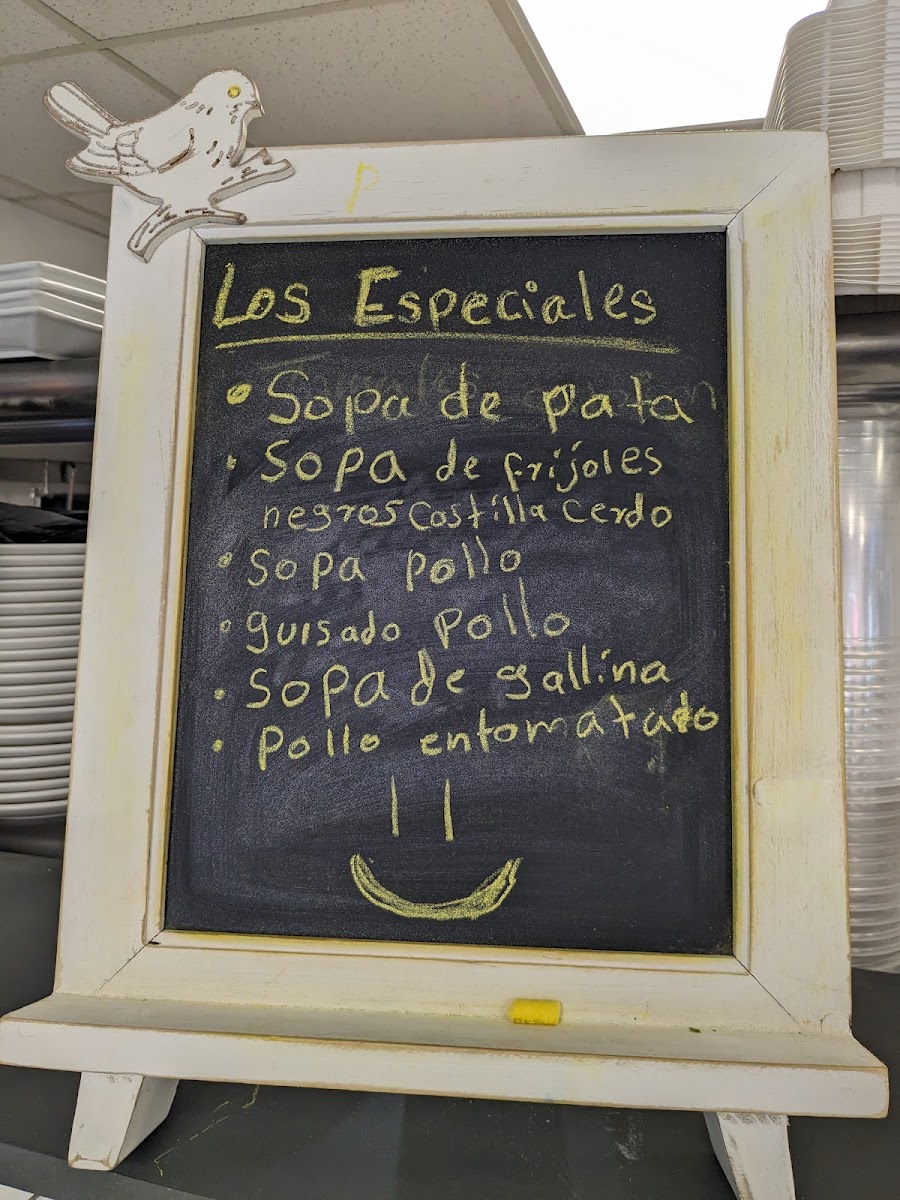 P
Los Especiales
• Sopa de pata
• Sopa de frijoles
negros costilla cerdo
• Sopa pollo
• guisado pollo
• Sopa de gallina
• Pollo entomatado